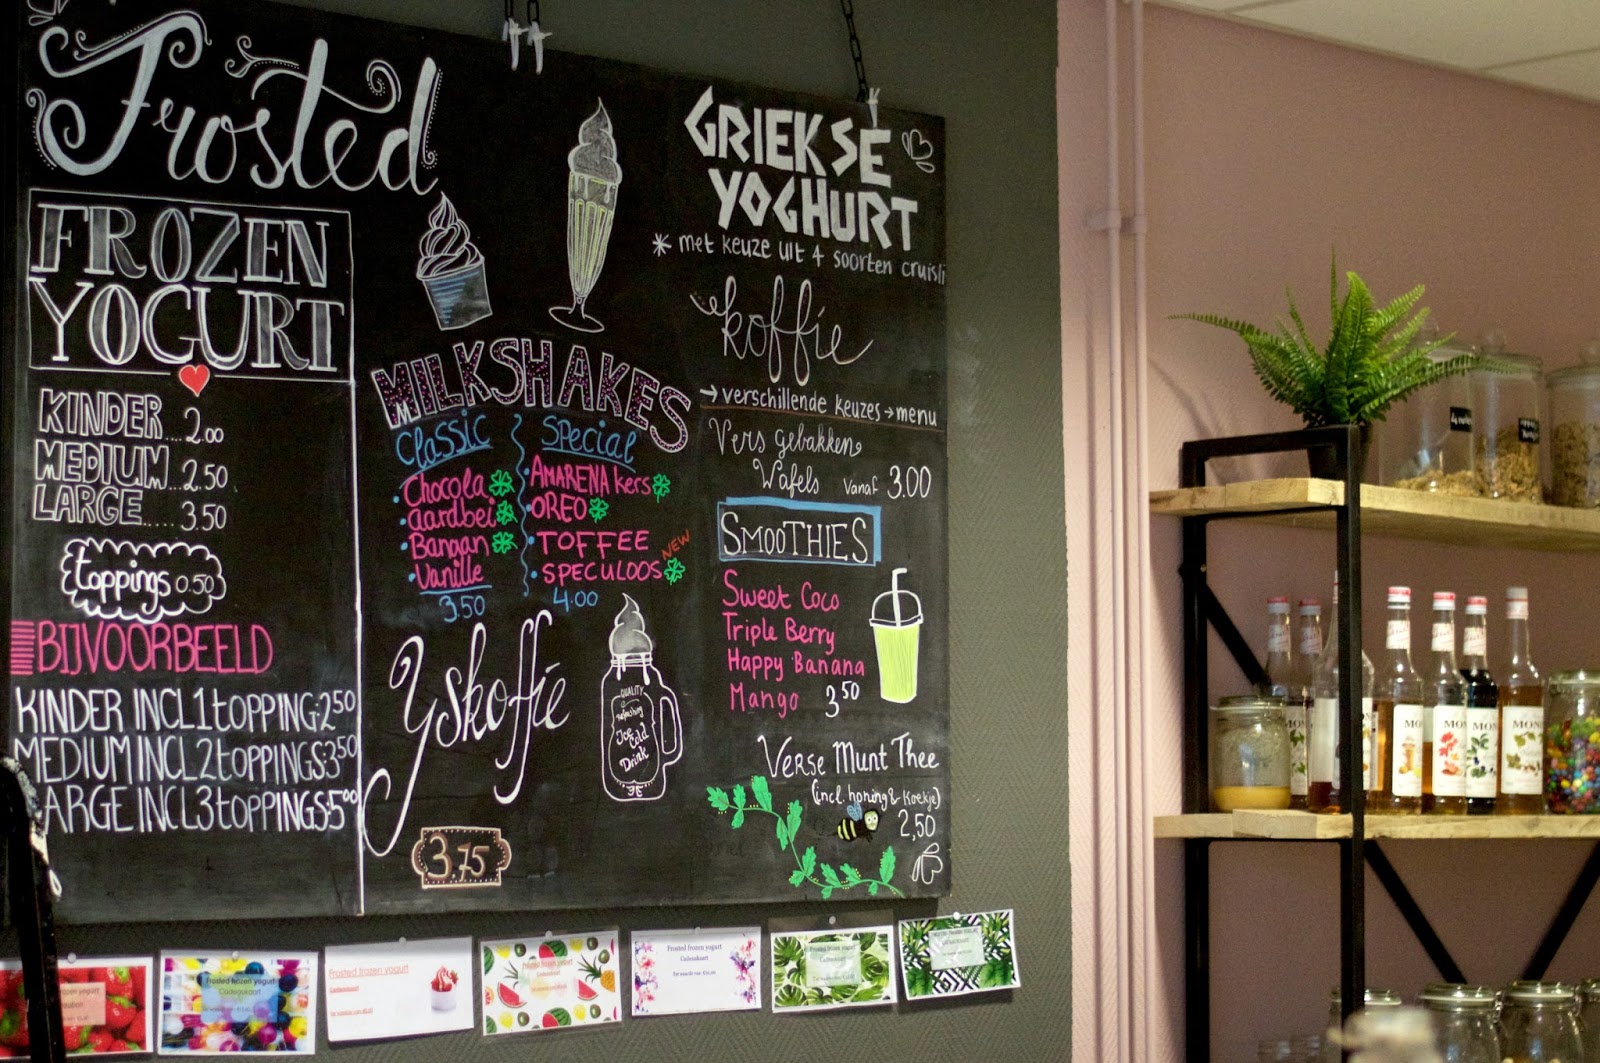 Frosted
FROZEN
YOGURT
KINDER....2.00
MEDIUM...2.50
LARGE.....3.50
toppings 0.50
BIJVOORBEELD
KINDER INCL 1 tOPPING: 2.50
MEDIUM INCL 2 tOPPINGS: 3.50
LARGE INCL 3 tOPPINGS: 5.00
MILKSHAKES
Classic
• Chocola
• aardbei
• Banaan
• Vanille
3.50
Special
• AMARENA kers
• OREO
• TOFFEE
• SPECULOOS NEW
4.00
Yskoffie
3.75
QUALITY
Refreshing
Ice Cold
Drink
GRIEKSE
YOGHURT
* met keuze uit 4 soorten cruisli
koffie
→ verschillende keuzes → menu
Vers gebakken
Wafels vanaf 3.00
SMOOTHIES
Sweet Coco
Triple Berry
Happy Banana
Mango 3.50
Verse Munt Thee
(incl. honing & koekje)
2,50
Frosted frozen yogurt
Cadeaukaart
Frosted frozen yogurt
Cadeaukaart
Frosted frozen yogurt
Cadeaukaart
Frosted frozen yogurt
Cadeaukaart
MONIN